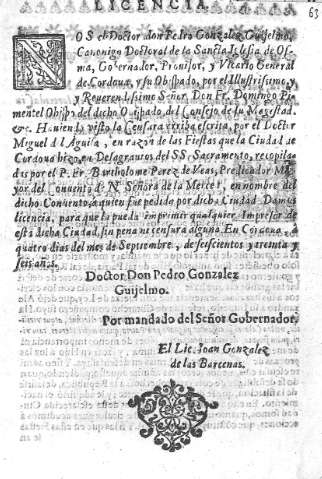 LICENCIA.
63
NOS el Doctor don Pedro Gonzalez Guijelmo,
Canonigo Doctoral de la Sancta Iglesia de Os-
ma, Gobernador, Provisor, y Vicario General
de Cordoua, y su Obispado, por el Illustrissimo, y
y Reuerendissimo Señor, Don Fr. Domingo Pi-
mentel Obispo del dicho Obispado, del Consejo de su Magestad,
&c. Hauiendo visto la Censura arriba escrita, por el Doctor
Miguel del Aguila, en razon de las Fiestas que la Ciudad de
Cordoua hizo, en Desagrauios del SS. Sacramento, recopila-
das por el P. Fr. Bartholome Perez de Veas, Predicador Ma-
yor del Conuento de N. Señora de la Merced, en nombre del
dicho Conuento, a quien fue pedido por dicha Ciudad. Damos
licencia, para que la pueda imprimir qualquier Impresor de
esta dicha Ciudad, sin pena ni censura alguna. En Cordoua, à
quatro dias del mes de Septiembre, de seiscientos y treinta y
seis años.
Doctor Don Pedro Gonzalez
Guijelmo.
Por mandado del Señor Gobernador,
El Lic. Ioan Gonzalez
de las Barcenas.